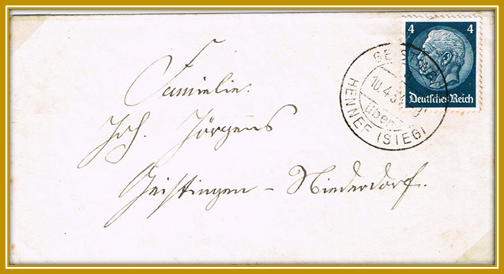 4 4
Deutsches Reich
10.4.3
über
HENNEF (SIEG)
Familie
Joh. Jörgens
Geistingen - Niederdorf.